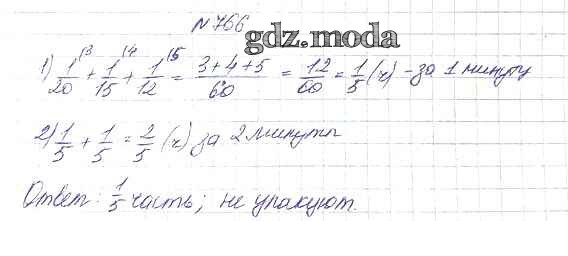 № 766
gdz.moda
1) 1/20 \3 + 1/15 \4 + 1/12 \5 = (3+4+5)/60 = 12/60 = 1/5 (ч) - за 1 минуту
2) 1/5 + 1/5 = 2/5 (ч) за 2 минуты
Ответ: 1/5 часть; не упакуют.